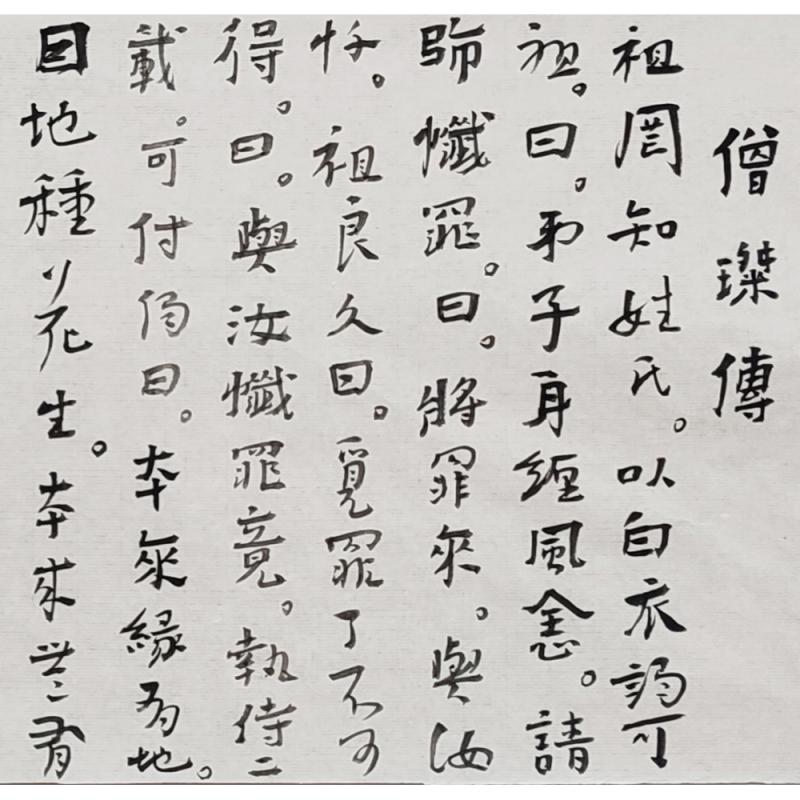 僧璨傳
祖罔知姓氏。以白衣謁可
祖。曰。弟子身纏風恙。請
師懺罪。曰。將罪來。與汝
忏。祖良久曰。覓罪了不可
得。曰。與汝懺罪竟。執侍二
載。可付偈曰。本來緣有地。
因地種花生。本來無有